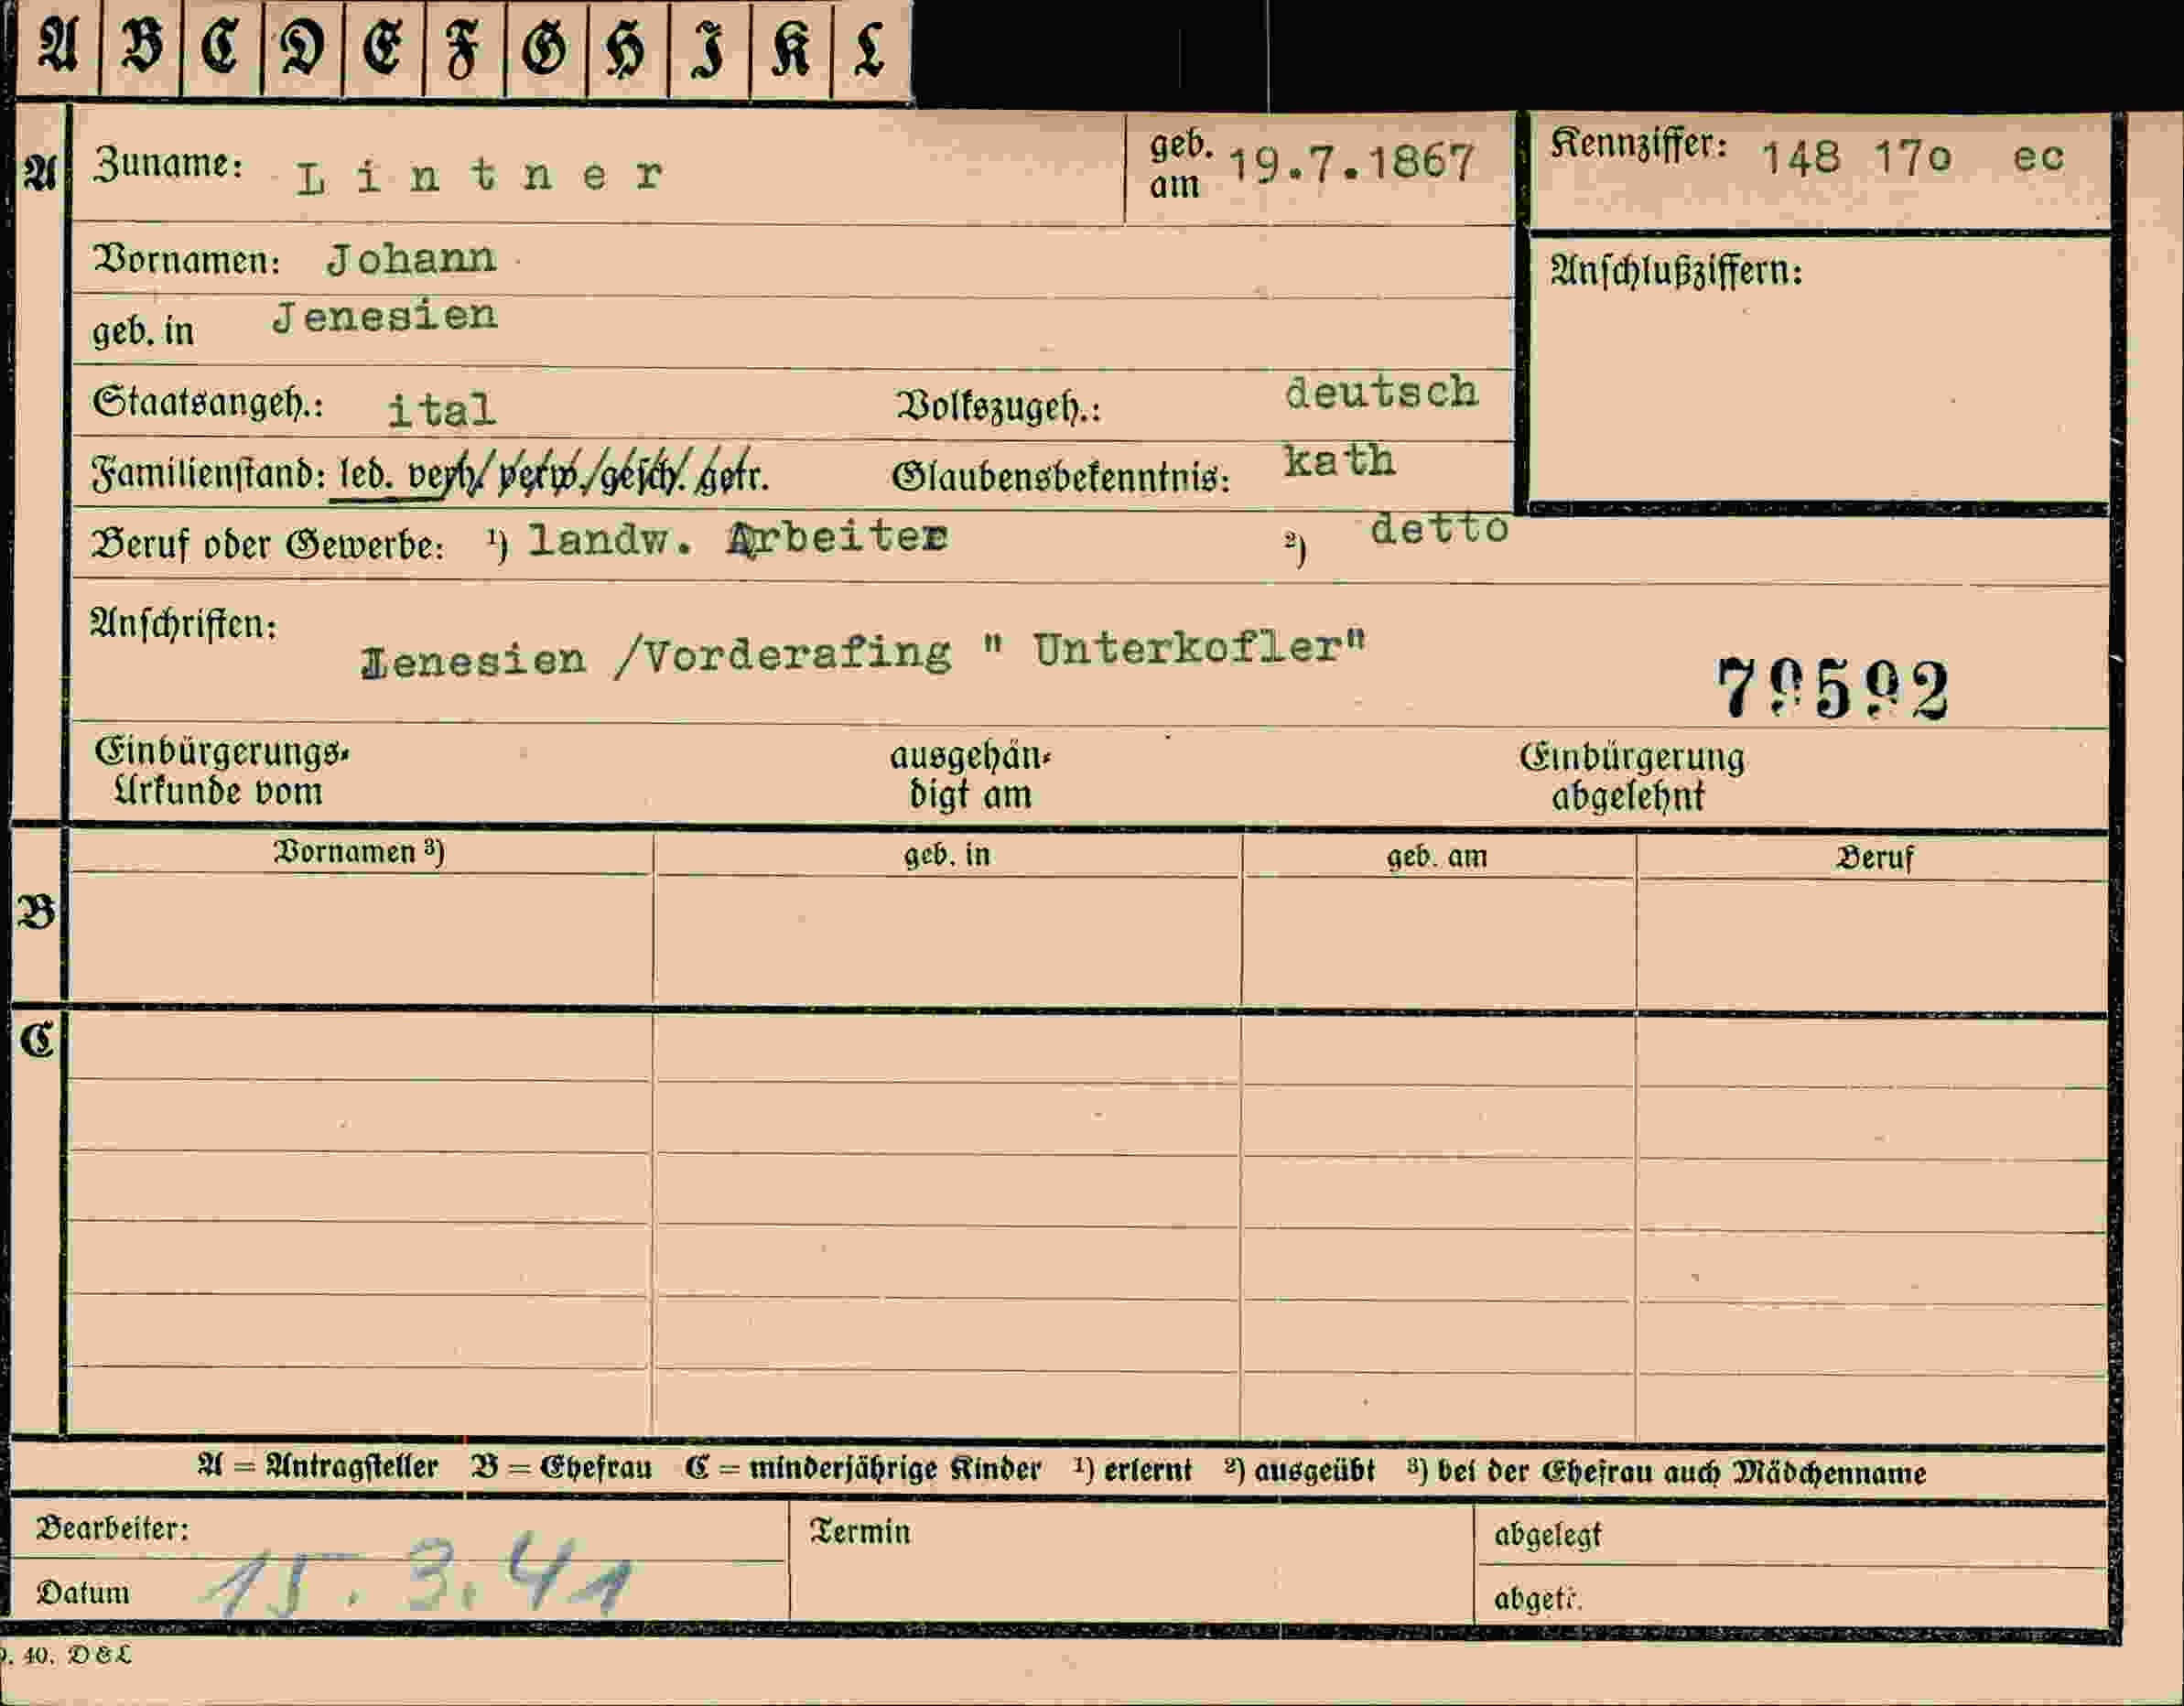 A B C D E F G H I K L
A Zuname: Lintner geb. am 19.7.1867 Kennziffer: 148 17o ec
Vornamen: Johann Anschlußziffern:
geb. in Jenesien
Staatsangeh.: ital Volkszugeh.: deutsch
Familienstand: led. verh. verw./gesch. getr. Glaubensbekenntnis: kath
Beruf oder Gewerbe: ¹) landw. Arbeiter ²) detto
Anschriften:
Jenesien /Vorderafing " Unterkofler"
79592
Einbürgerungs-Urkunde vom ausgehändigt am Einbürgerung abgelehnt
Vornamen ³) geb. in geb. am Beruf
B
C
A = Antragsteller B = Ehefrau C = minderjährige Kinder ¹) erlernt ²) ausgeübt ³) bei der Ehefrau auch Mädchenname
Bearbeiter: Termin abgelegt
Datum 15. 3. 41 abgetr.
40. D & L